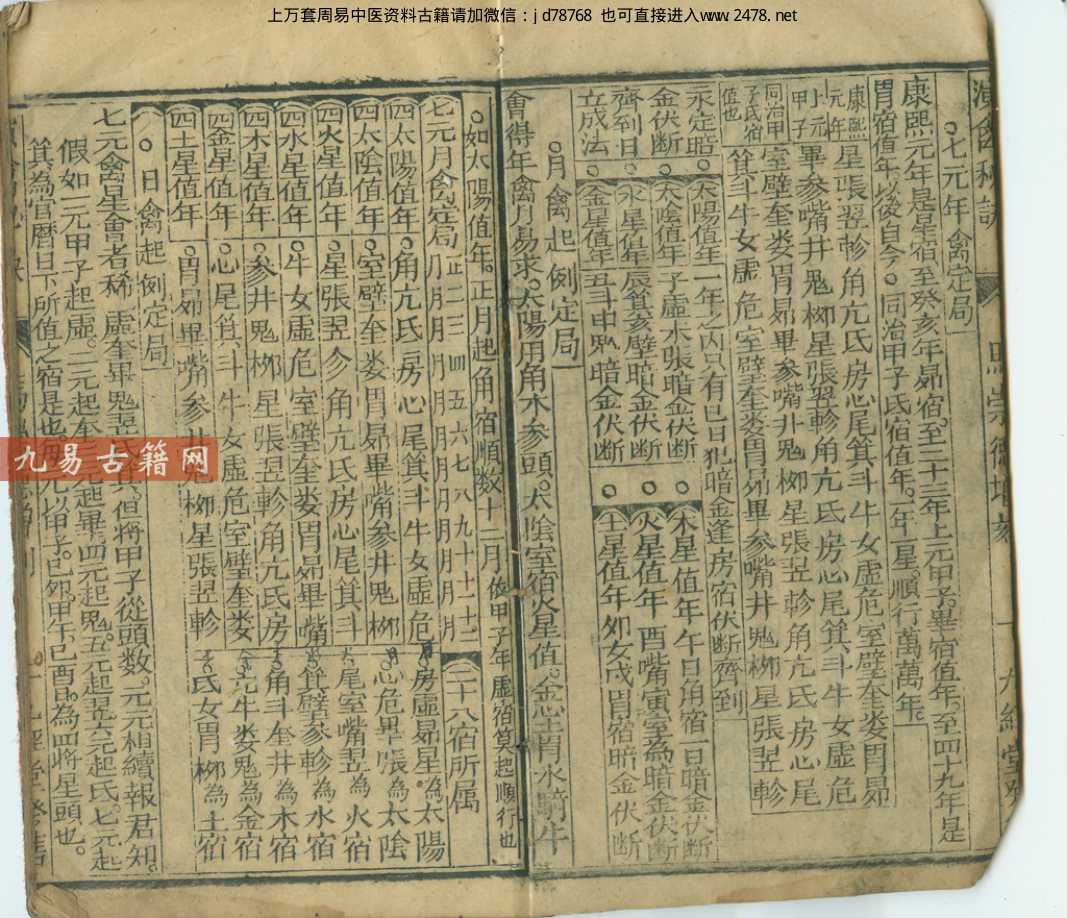 上万套周易中医资料古籍请加微信：jd78768 也可直接进入www.2478.net
七元年禽定局
康熙元年是星宿至癸亥年昴宿至二十三年上元甲子畢宿值年至四十九年是
胃宿值年以後自今同治甲子氐宿值年一年一星順行萬萬年
康熙元年
星張翌軫角亢氐房心尾箕斗牛女虛危室壁奎娄胃昴
小元甲子
畢參嘴井鬼柳星張翌軫角亢氐房心尾箕斗牛女虛危
同治甲子氐宿值也
室壁奎娄胃昴畢參嘴井鬼柳星張翌軫角亢氐房心尾
箕斗牛女虛危室壁奎娄胃昴畢參嘴井鬼柳星張翌軫
永定暗金伏断齊到日立成法
太陽值年一年之内只有巳日犯暗金逢房宿伏断齊到
太陰值年子虛水張暗金伏断
水星值年辰箕亥壁暗金伏断
金星值年丑斗申鬼暗金伏断
木星值年午日角宿一日暗金伏断
火星值年酉嘴寅室為暗金伏断
土星值年卯女戌胃宿暗金伏断
月禽起例定局
會得年禽月易求太陽用角木參頭太陰室宿火星值金心土胃水騎牛
如太陽值年正月起角宿順数十二月 後甲子年虛宿算起順行也
七元月禽定局 正月二月三月四月五月六月七月八月九月十月十一月十二月
四太陽值年 角亢氐房心尾箕斗牛女虛危
四太陰值年 室壁奎娄胃昴畢嘴參井鬼柳
四火星值年 星張翌軫角亢氐房心尾箕斗
四水星值年 牛女虛危室壁奎娄胃昴畢嘴
四木星值年 參井鬼柳星張翌軫角亢氐房
四金星值年 心尾箕斗牛女虛危室壁奎娄
四土星值年 胃昴畢嘴參井鬼柳星張翌軫
二十八宿所属
房虛昴星為太陽
心危畢張為太陰
尾室嘴翌為火宿
箕壁參軫為水宿
角斗奎井為木宿
亢牛娄鬼為金宿
氐女胃柳為土宿
日禽起例定局
七元禽星會者稀虛奎畢鬼翌氐箕但將甲子從頭数元元相續報君知
假如一元甲子起虛二元起奎三元起畢四元起鬼五元起翌六元起氐七元起
箕為官曆日下所值之宿是也每元以甲子己卯甲午己酉日為四将星頭也
九易古籍网